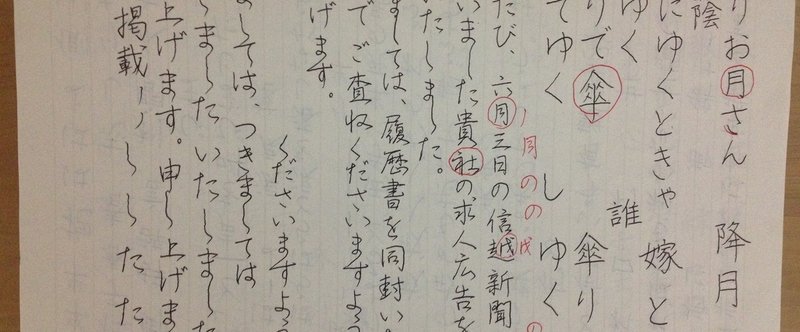 りお月さん　降月
陰
にゆくときゃ　嫁と
ゆく　誰
りで傘　傘り
てゆく　しゆく
月のの
たび、六月三日の信越新聞
いました貴社の求人広告を
たしました。
ましては、履歴書を同封い
でご査収くださいますよう
げます。
くださいますよう
ましては、つきましては
しましたいたしました
上げます。申し上げま
掲載いししたた